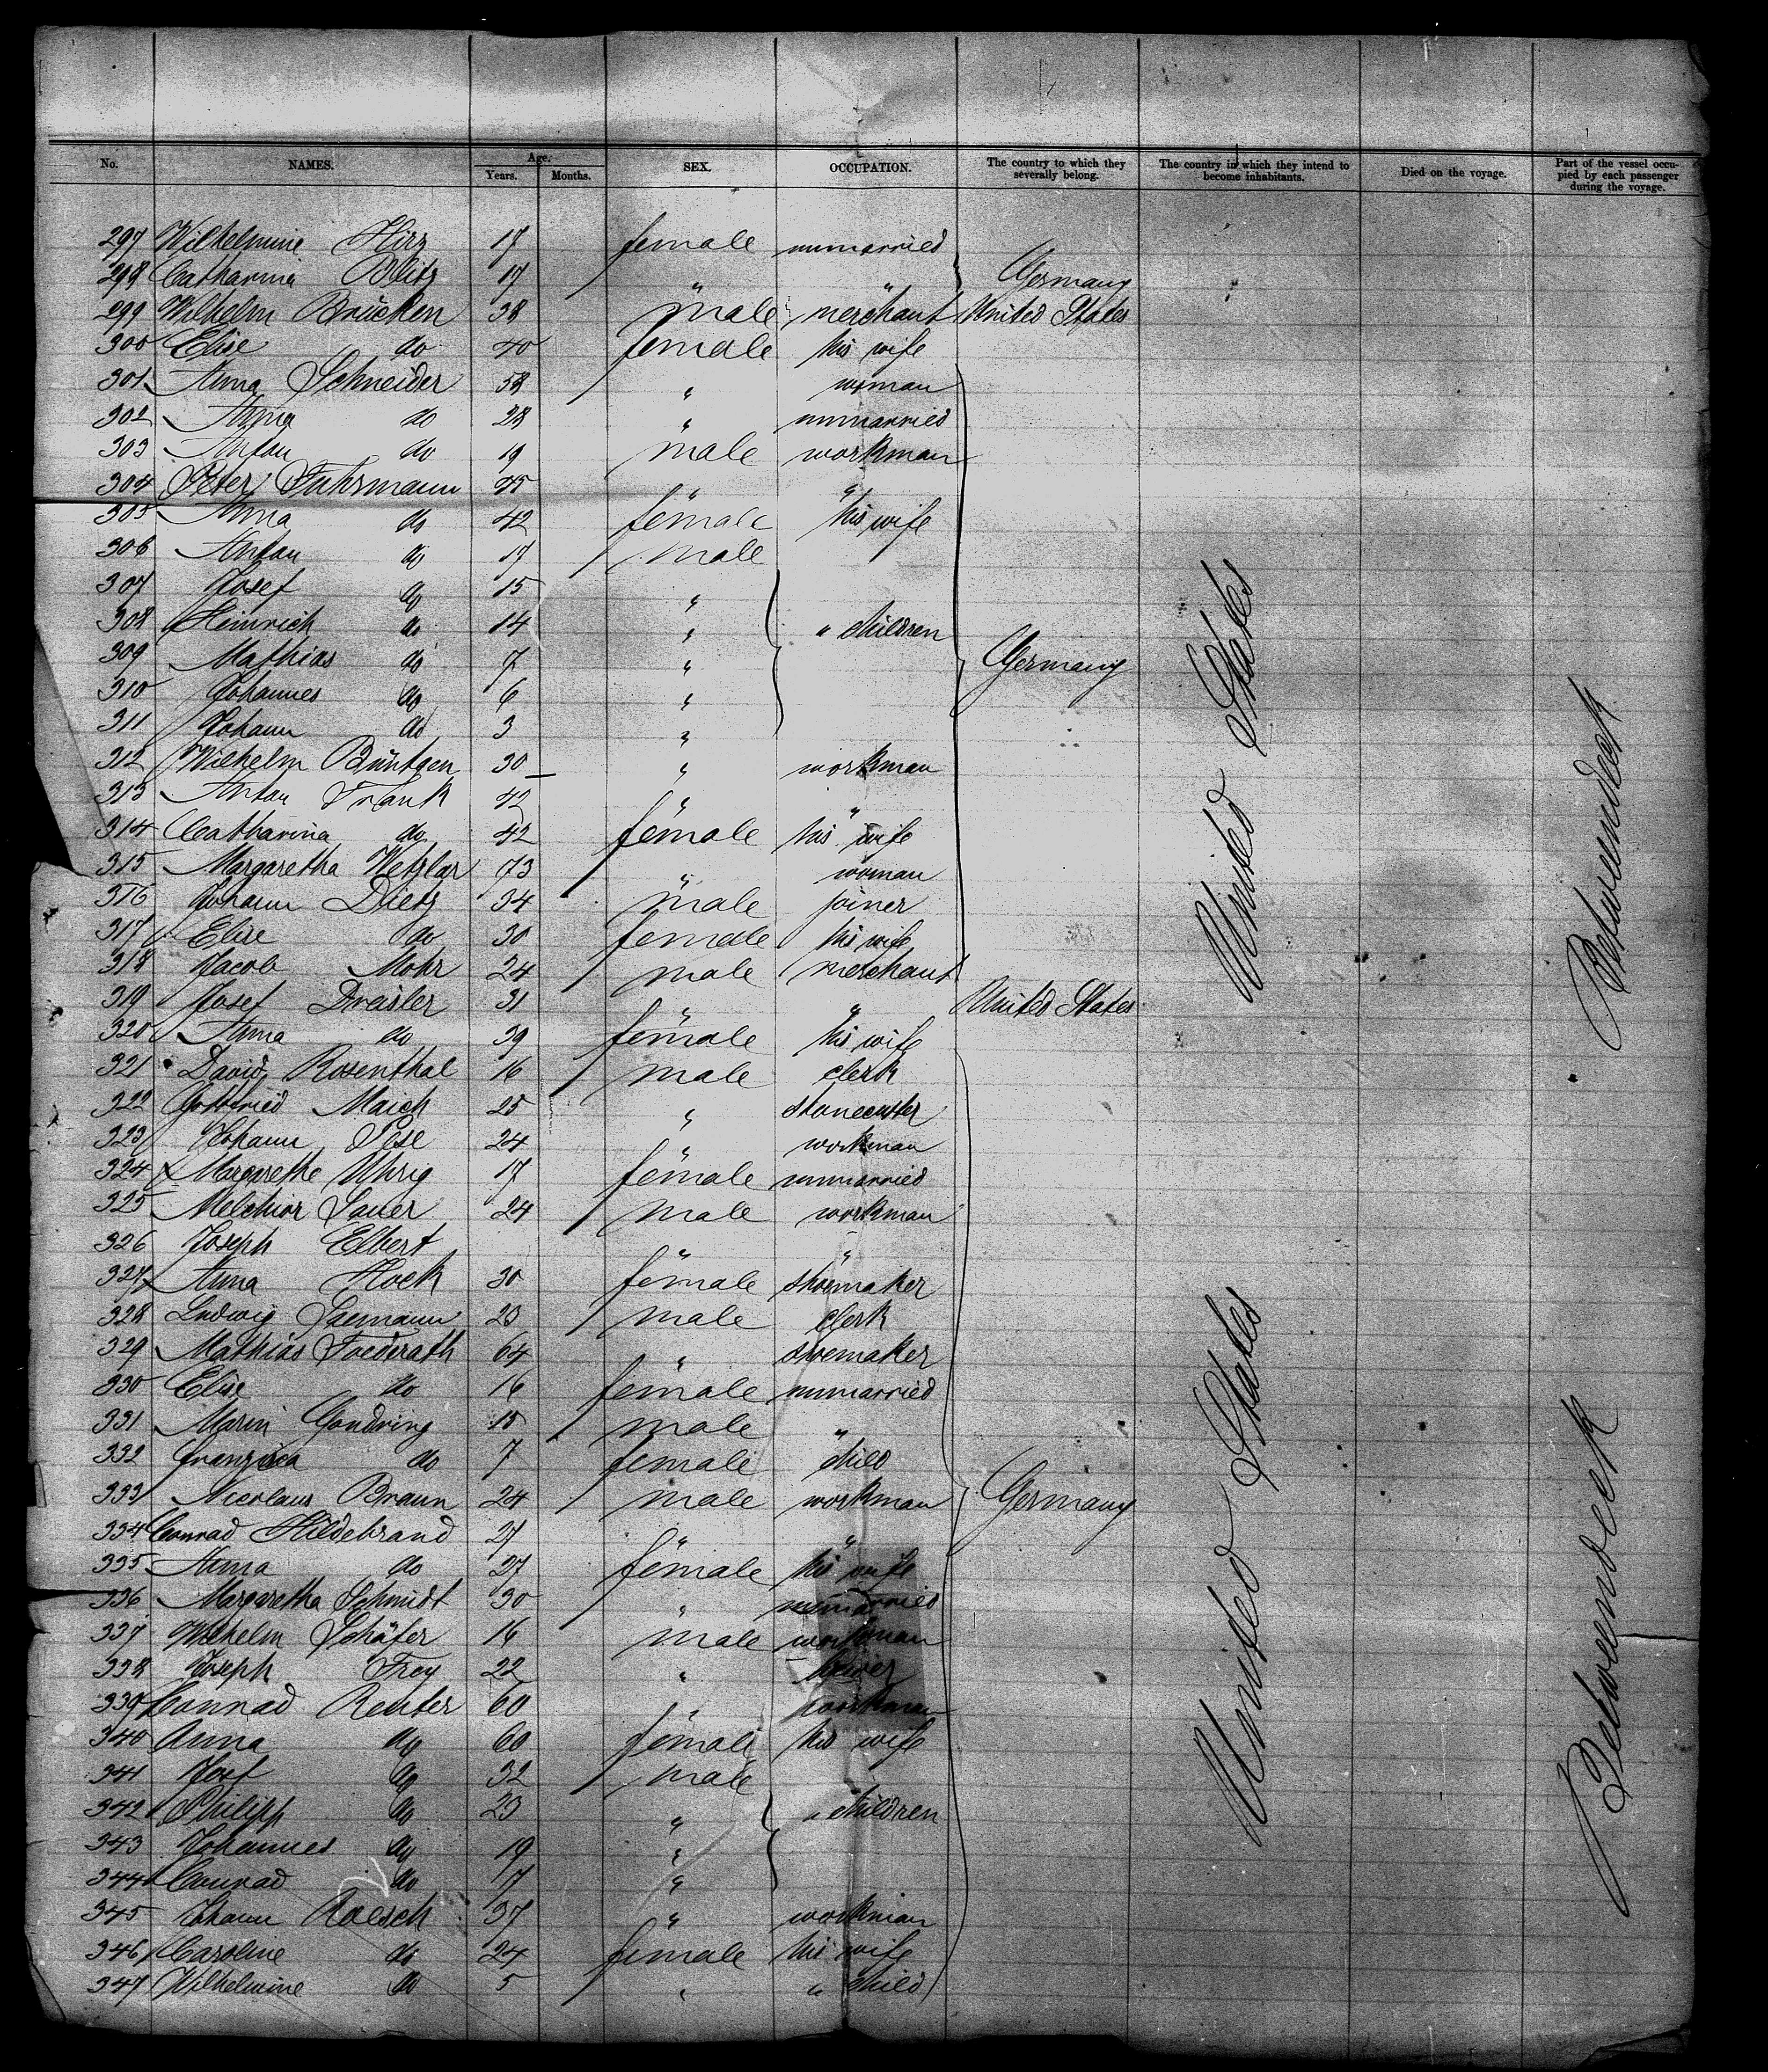 No. NAMES. Age. Years. Months. SEX. OCCUPATION. The country to which they severally belong. The country in which they intend to become inhabitants. Died on the voyage. Part of the vessel occupied by each passenger during the voyage.
297 Wilhelmine Hirz 17 female unmarried
298 Catharina Blitz 17 " " Germany
299 Wilhelm Brücken 38 male merchant United States
300 Elise do 40 female his wife
301 Anna Schneider 58 " woman
302 Anna do 28 " unmarried
303 Anton do 19 male workman
304 Peter Fuhrmann 45 " "
305 Anna do 42 female his wife
306 Anton do 17 male
307 Josef do 15 "
308 Heinrich do 14 " " children
309 Mathias do 7 " Germany
310 Johannes do 6 "
311 Johann do 3 "
312 Wilhelm Büntgen 30 " workman
313 Anton Frank 42 " "
314 Catharina do 42 female his wife
315 Margaretha Wetzlar 73 " woman
316 Johann Dietz 34 male joiner
317 Elise do 30 female his wife
318 Jacob Mohr 24 male merchant
319 Josef Draisler 31 " " United States
320 Anna do 39 female his wife
321 David Rosenthal 16 male clerk
322 Gottfried Maich 25 " stonecutter
323 Johann 24 " workman
324 Margarethe Uhrig 17 female unmarried
325 Melchior Sauer 24 male workman
326 Joseph Elbert " "
327 Anna Hock 30 female shoemaker
328 Ludwig Saemann 23 male clerk
329 Mathias Foederath 64 " shoemaker
330 Elise do 16 female unmarried
331 Marin Gondring 15 male "
332 Franzisca do 7 female child
333 Nicolaus Braun 24 male workman Germany
334 Conrad Hildebrand 27 " "
335 Anna do 27 female his wife
336 Margaretha Schmidt 30 " unmarried
337 Wilhelm Schäfer 16 male workman
338 Joseph Frey 22 "
339 Conrad Reuter 60 " workman
340 Anna do 60 female his wife
341 Jost do 32 male
342 Philipp do 23 " " children
343 Johannes do 19 "
344 Conrad do 17 "
345 Johann Roesch 37 " workman
346 Caroline do 24 female his wife
347 Wilhelmine do 5 " " child
United States
United States
Betweendeck
Betweendeck